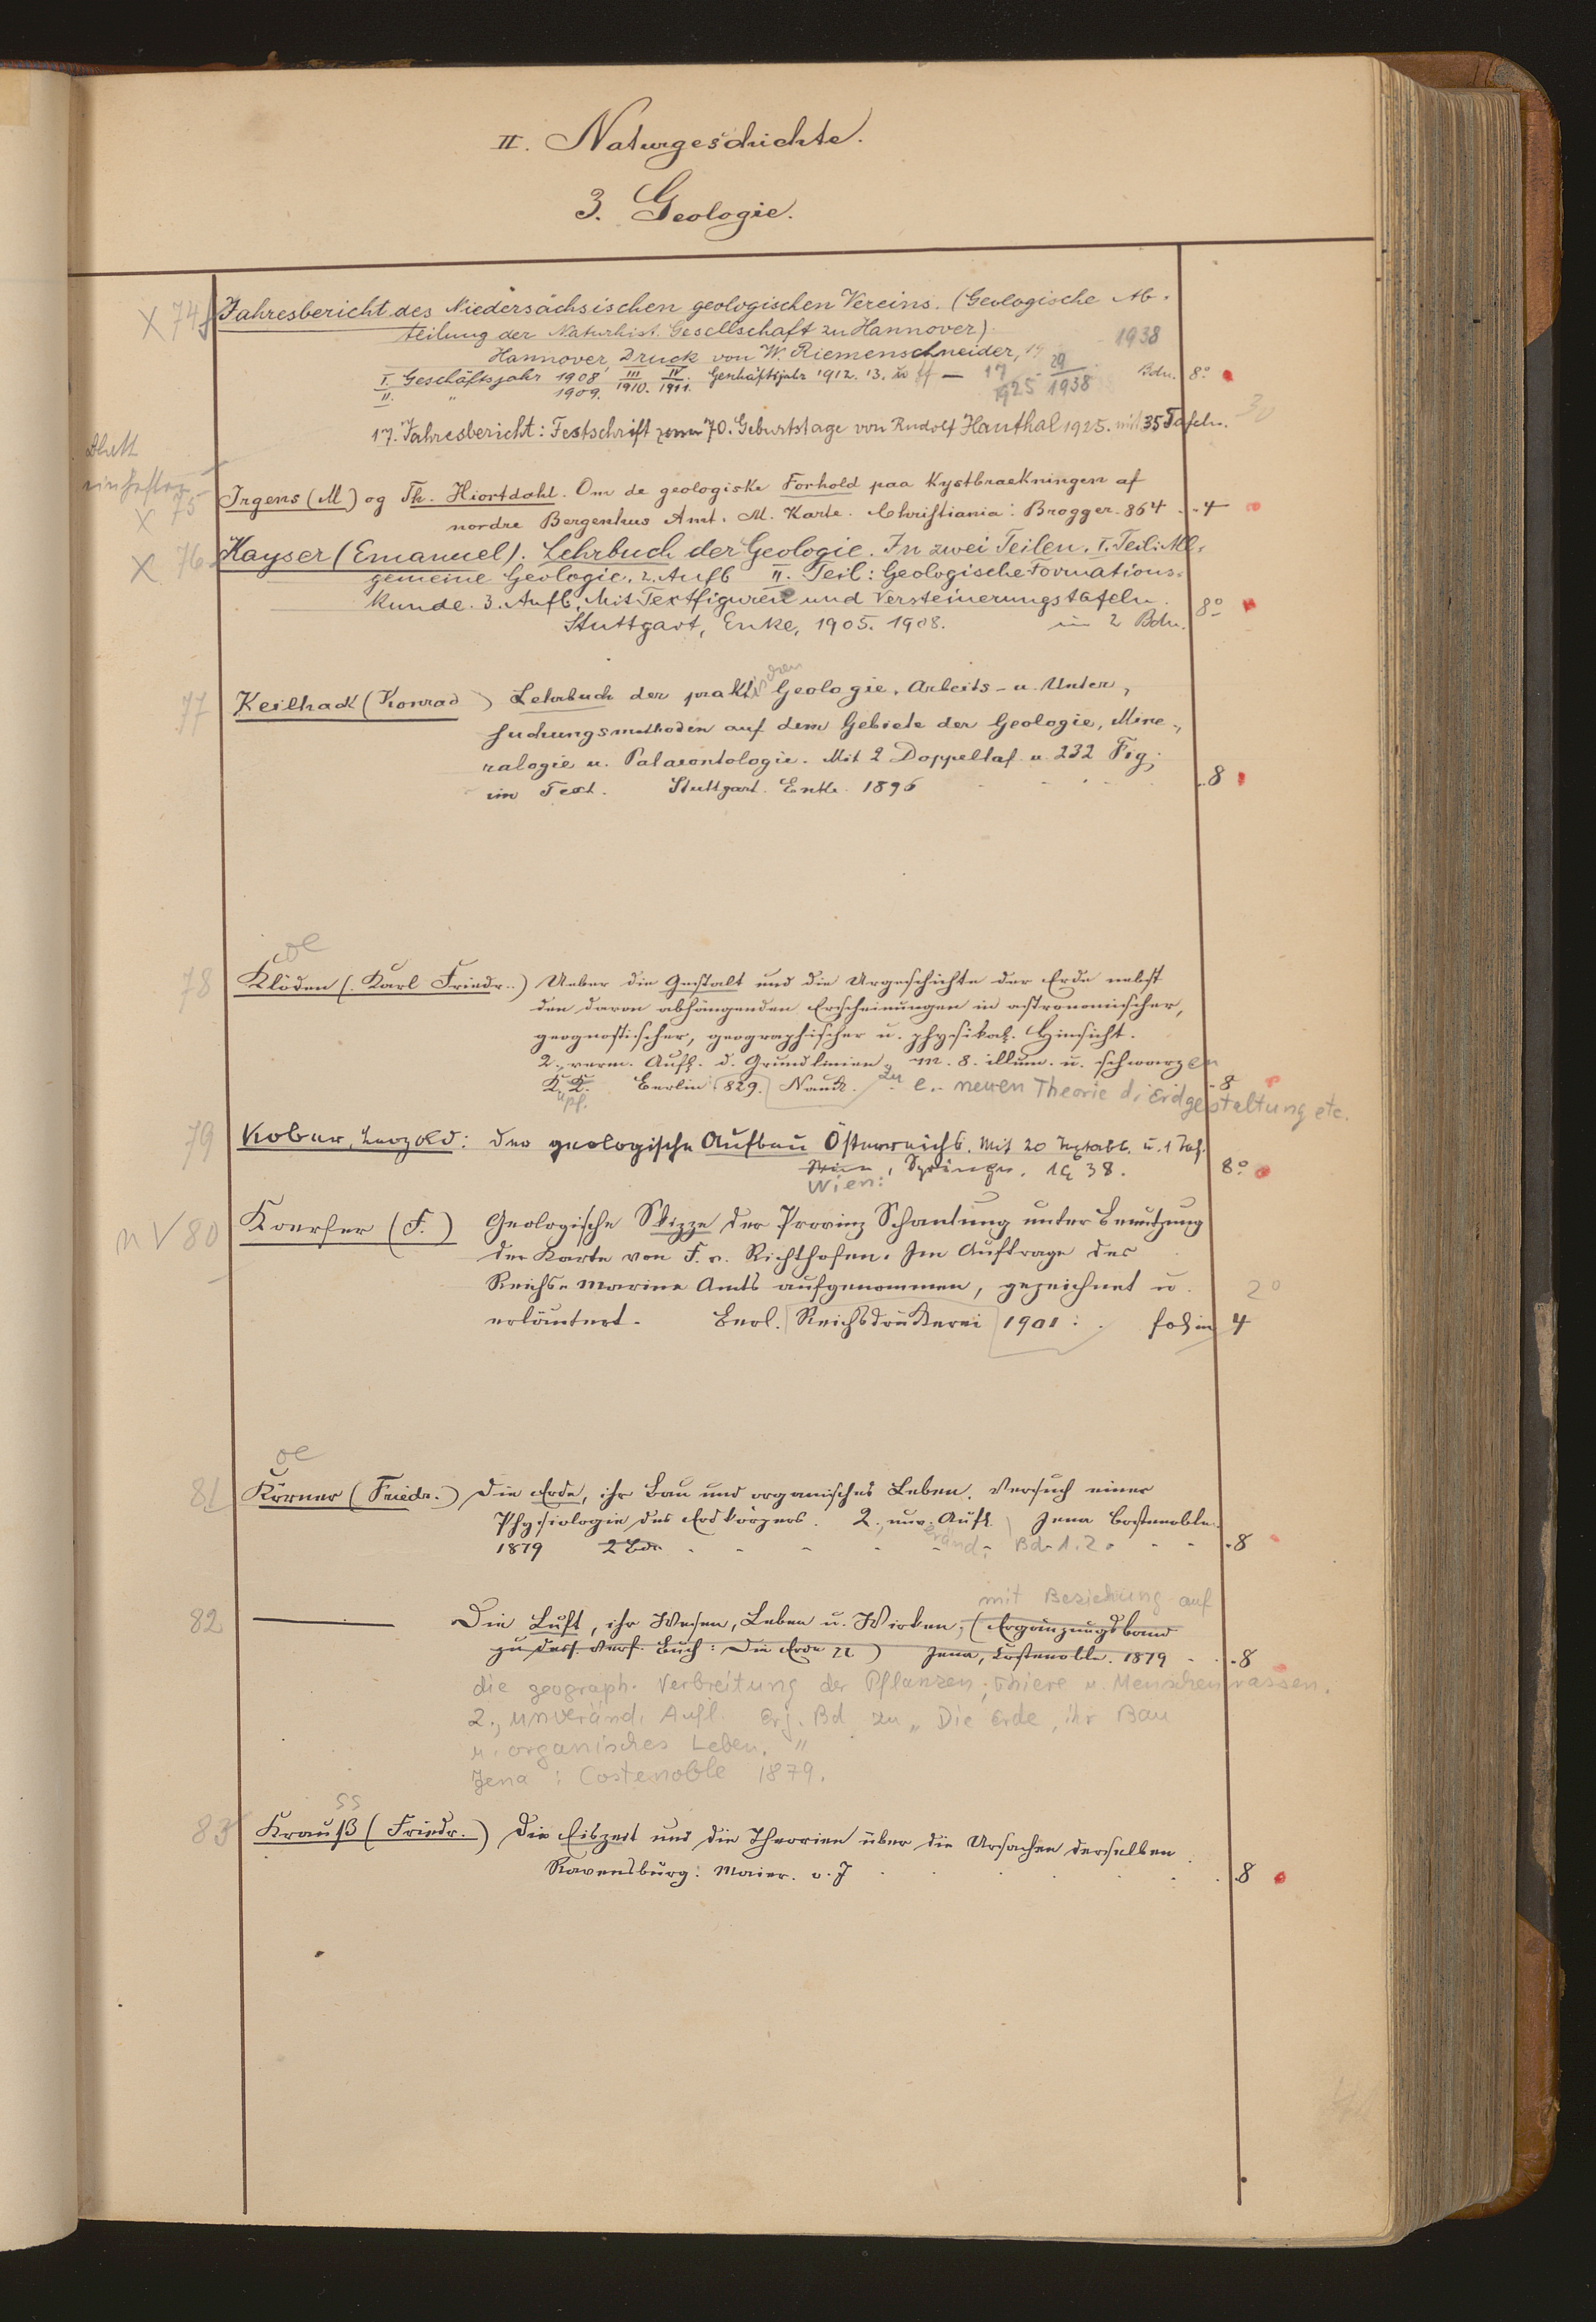 II. Naturgeschichte.
3. Geologie.
X 74 Jahresbericht des Niedersächsischen geologischen Vereins. (Geologische Ab-
teilung der Naturhist. Gesellschaft zu Hannover).
Hannover, Druck von W. Riemenschneider, 19 - 1938
I. Geschäftsjahr 1908, III 1910. IV 1911. Geschäftsjahr 1912. 13. u ff — 17 1925 - 29 1938 Bdn. 8°
II. " 1909.
30
17. Jahresbericht: Festschrift zum 70. Geburtstage von Rudolf Hauthal 1925. mit 35 Tafeln.
Blatt
einheften
X 75 Irgens (M) og Th. Hiortdahl. Om de geologiske Forhold paa Kystbraekningen af
nordre Bergenhus Amt. M. Karte. Christiania: Brogger. 864 . . 4
X 76 Kayser (Emanuel). Lehrbuch der Geologie. In zwei Teilen. I. Teil: All-
gemeine Geologie. 2. Aufl. II. Teil: Geologische Formations-
kunde. 3. Aufl. Mit Textfiguren und Versteinerungstafeln.
Stuttgart, Enke, 1905. 1908. in 2 Bdn. 8°
77 Keilhack (Konrad) Lehrbuch der praktischen Geologie. Arbeits- u. Unter-
suchungsmethoden auf dem Gebiete der Geologie, Mine-
ralogie u. Palaeontologie. Mit 2 Doppeltaf. u. 232 Fig.
im Text. Stuttgart. Enke. 1896 . . 8
oe
78 Klöden (Karl Friedr..) Ueber die Gestalt und die Urgeschichte der Erde nebst
den davon abhängenden Erscheinungen in astronomischer,
geognostischer, geographischer u. physikal. Hinsicht.
2., verm. Aufl. d. Grundlinien. m. 8. illum. u. schwarzen
K. K. Berlin: 829. Nauck. zu e. neuen Theorie d. Erdgestaltung etc. 8
upf.
79 Kober, Leopold: der geologische Aufbau Österreichs. Mit 20 Textabb. u. 1 Taf.
Wien, Springer. 1938. 8°
Wien:
n V 80 Koerfer (F.) Geologische Skizze der Provinz Schantung unter Benutzung
der Karte von F. v. Richthofen. Im Auftrage des
Reichs-Marine Amts aufgenommen, gezeichnet u. 2°
erläutert. Berl. Reichsdruckerei 1901: . fol in 4
oe
81 Körner (Friedr.) Die Erde, ihr Bau und organisches Leben. Versuch einer
Physiologie des Erdkörpers. 2., unv. Aufl. Jena Costenoble.
1879 2 Bde eränd. Bd. 1.2. 8
mit Beziehung auf
82 —— Die Luft, ihr Wesen, Leben u. Wirken, (Ergänzungsband
zu dess. Verf. Buch: Die Erde etc) Jena, Costenoble. 1879 . . 8
die geograph. Verbreitung der Pflanzen, Thiere u. Menschenrassen.
2., unveränd. Aufl. Erg. Bd zu „Die Erde, ihr Bau
u. organisches Leben."
Jena: Costenoble 1879.
ss
83 Krauß (Friedr.) Die Eiszeit und die Theorien über die Ursachen derselben
Ravensburg: Maier. o. J . . 8